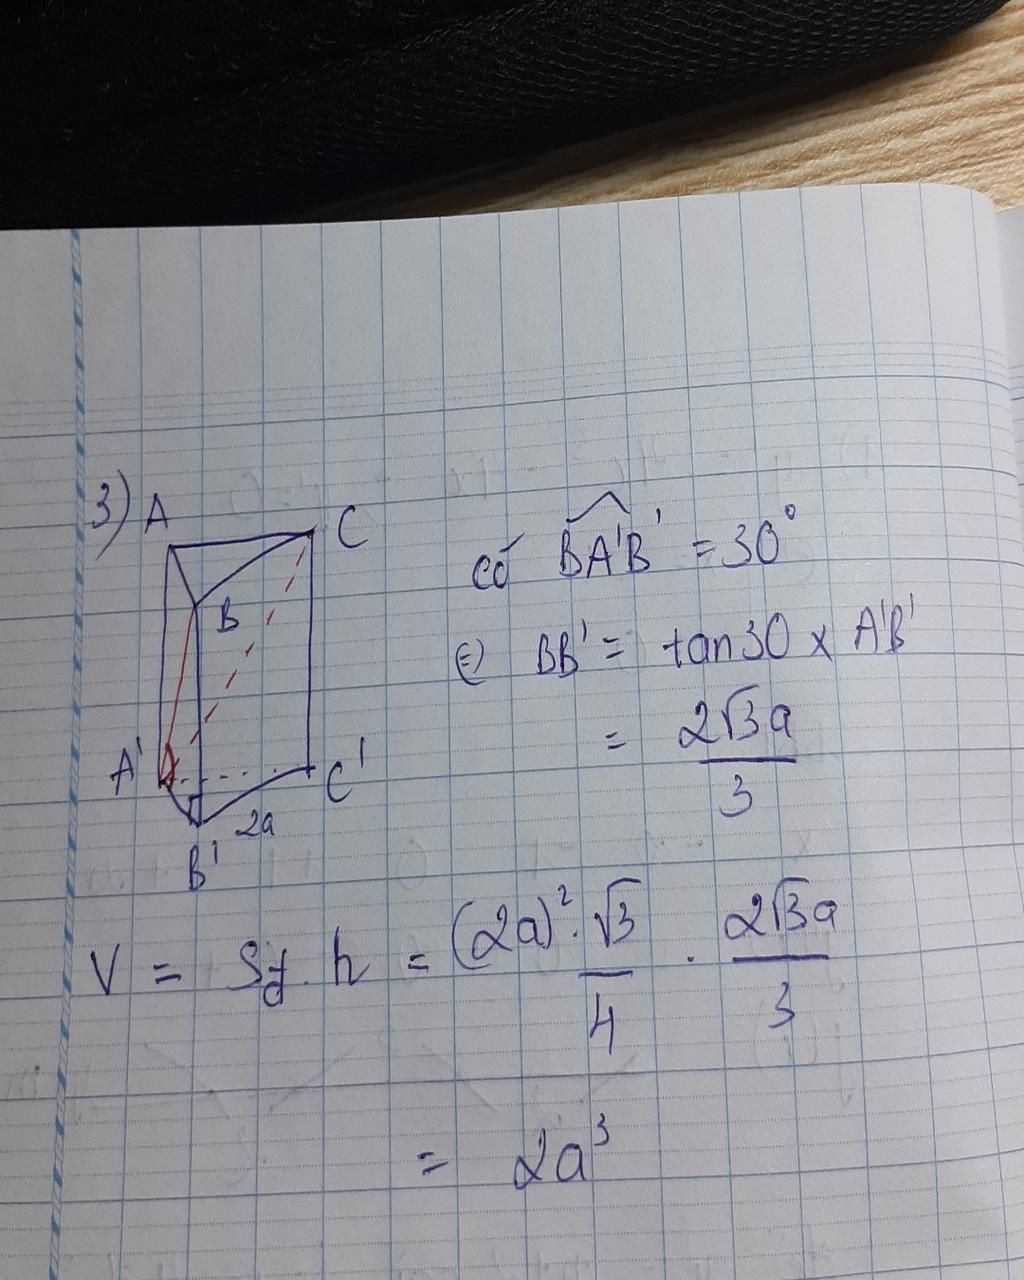 3) A
C
B
A'
C'
2a
B'
có BA'B' = 30°
⇔ BB' = tan30 x A'B'
= 2√3a / 3
V = Sđ. h = (2a)². √3 / 4 . 2√3a / 3
= 2a³